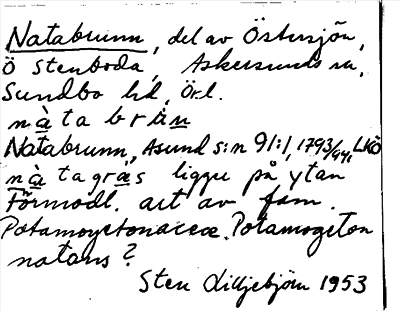 Natabrunn, del av Östersjön,
Ö Stenboda, Askersunds sn,
Sundbo hd, Örl.
nàta brạ̈n
Natabrunn, Asund s:n 91:1, 1793/94, LKÖ
nàtagras ligger på ytan
Förmodl. art av fam.
Potamogetonaceæ. Potamogeton
natans?
Sten Lilljebjörn 1953